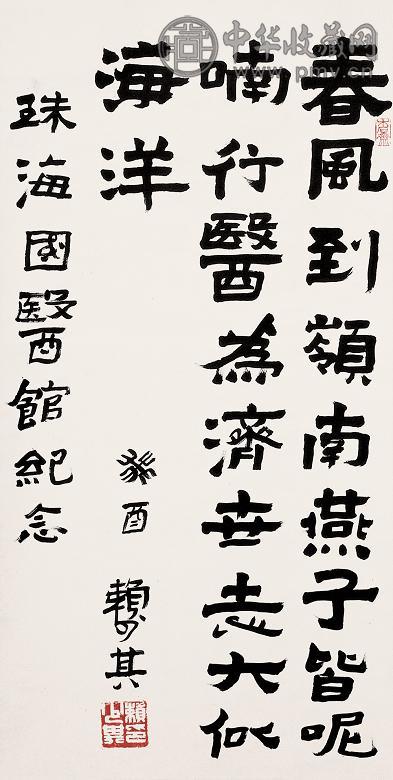 春風到嶺南燕子皆呢
喃行醫為濟世志大似
海洋
癸酉 賴少其
珠海國醫館紀念
賴少其
中华收藏网
www.pmv.cn